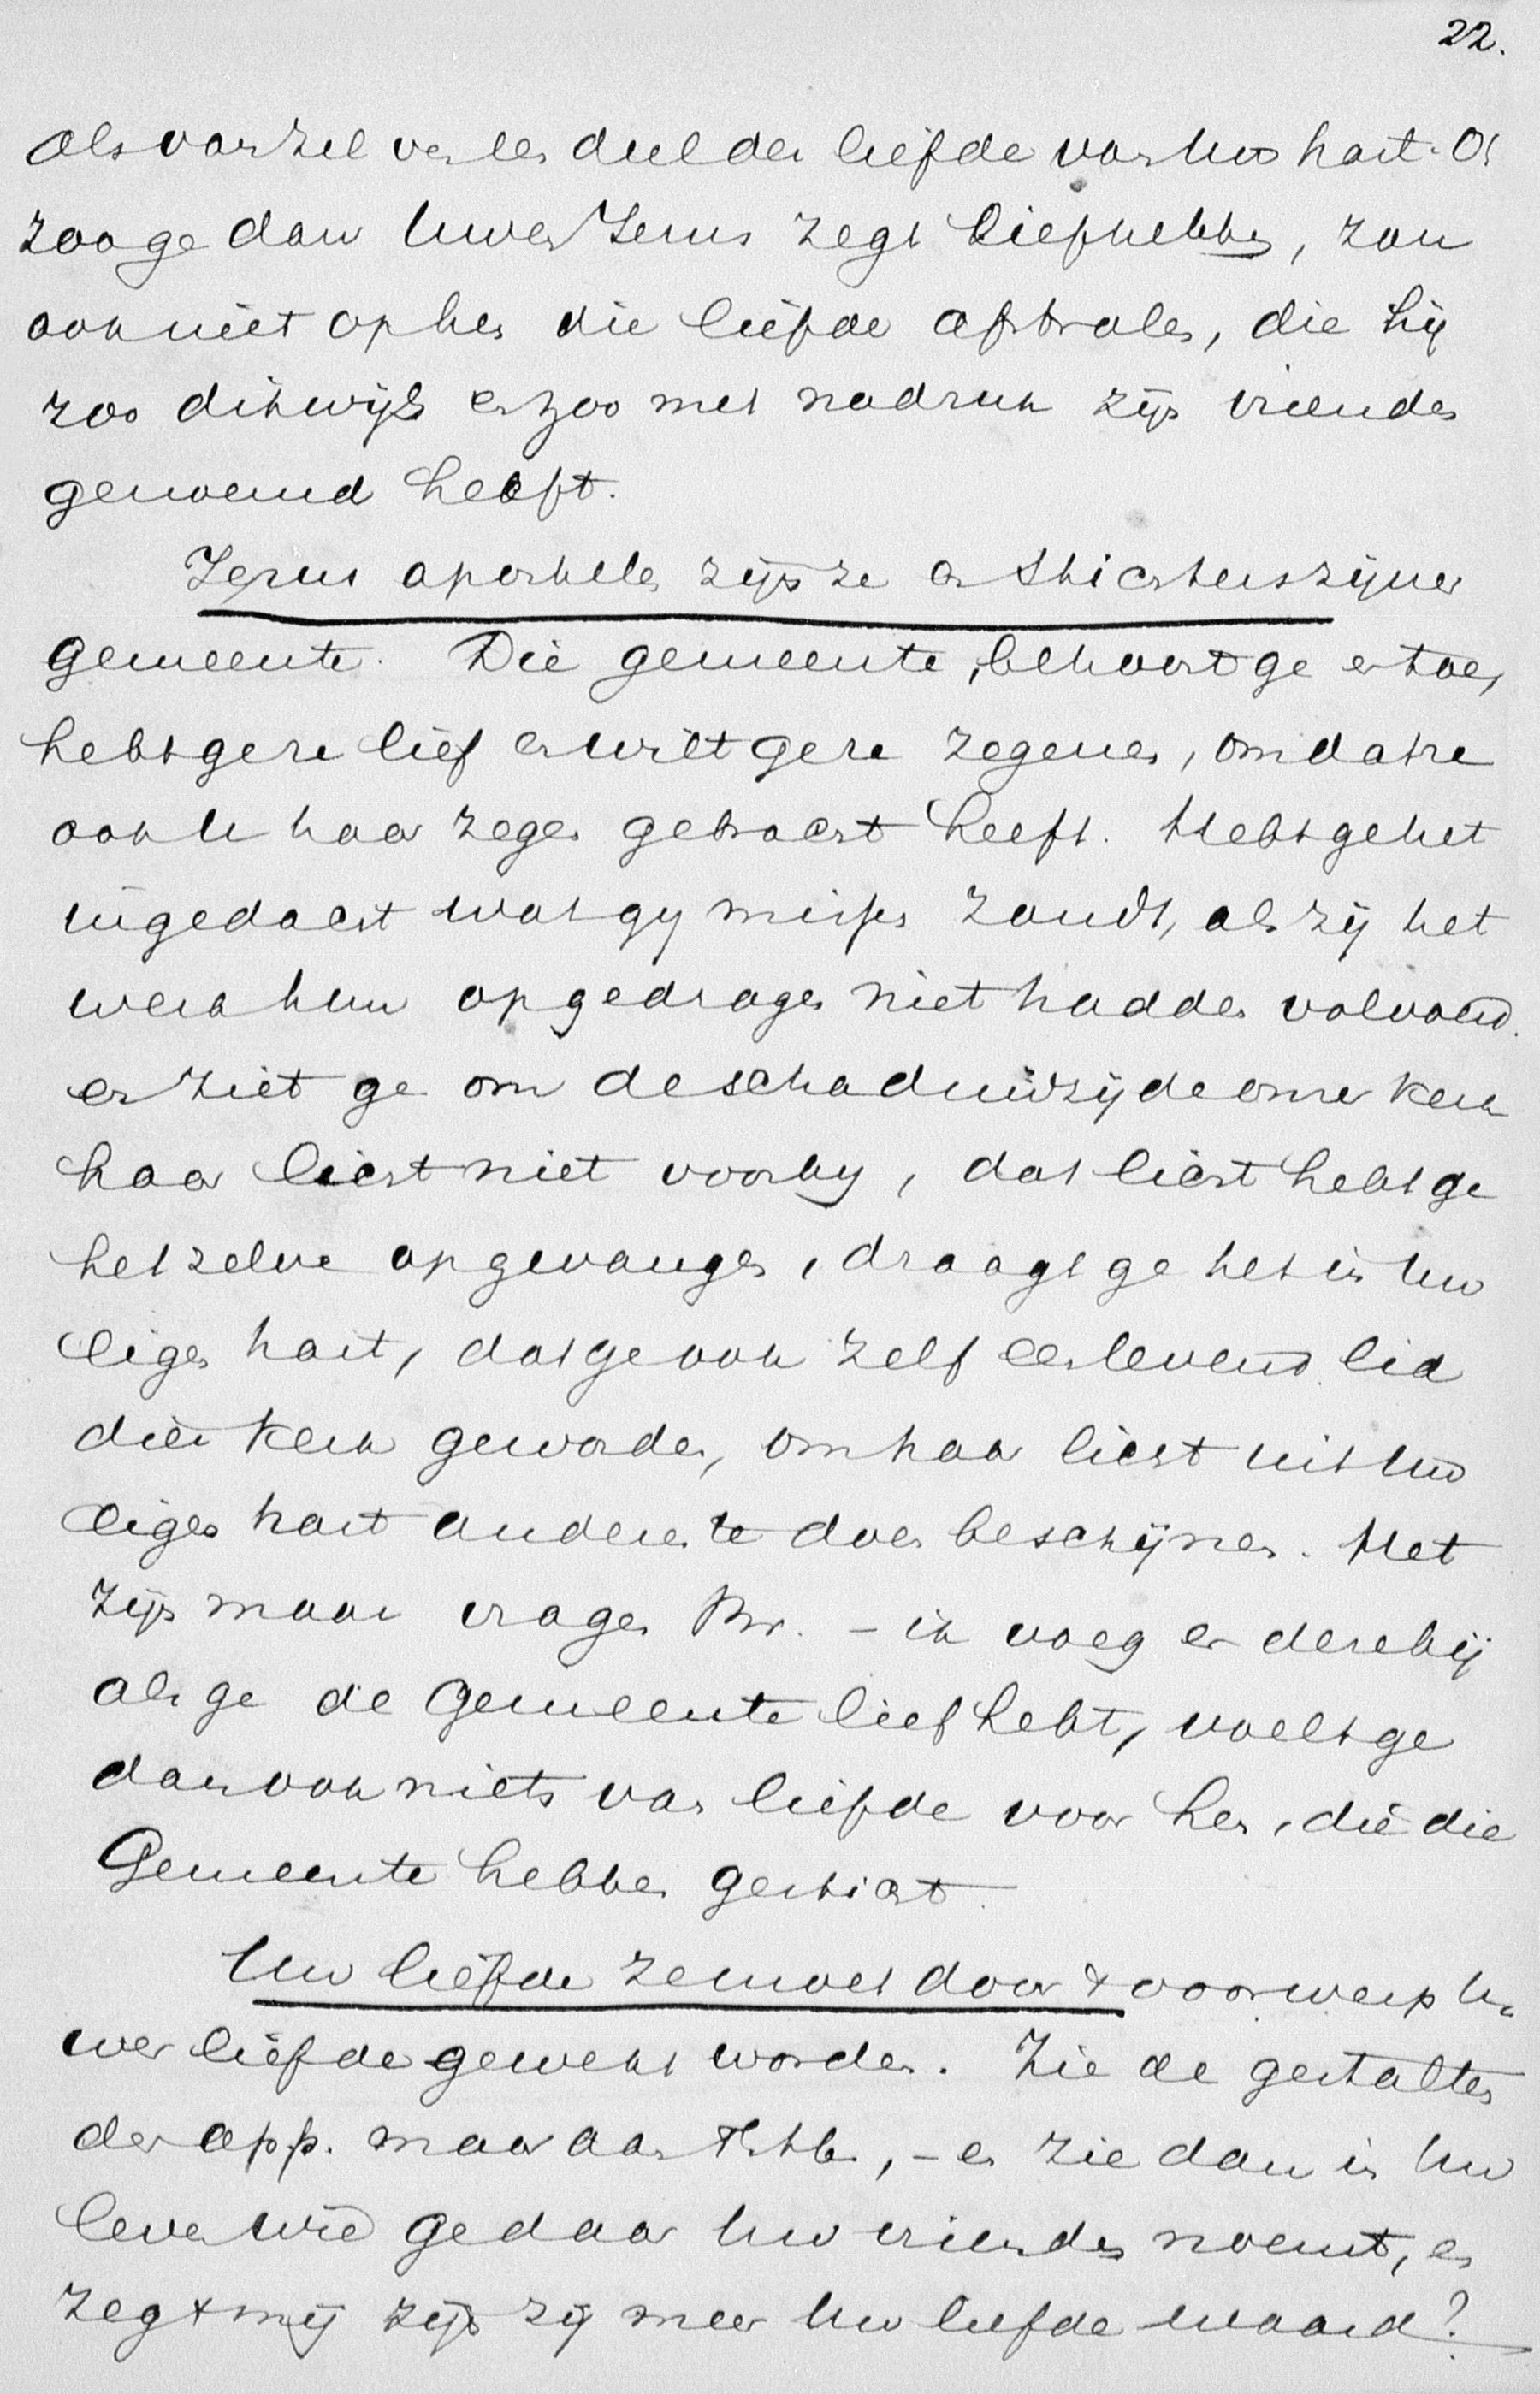 22.
als van zelve een deel der liefde van Uw hart. Of
zoo ge dan Uwen Jezus zegt lief hebben, zou
ook niet op hen die liefde afstralen, die hij
zoo dikwijls en zoo met nadruk zijn vrienden
genoemd heeft.
Jezus apostelen zijn ze en stichters zijner
gemeente. Die gemeente, behoort ge er toe,
hebt ge ze lief en wilt ge ze zegenen, omdat ze
ook U haar zegen gebracht heeft. Hebt ge het
ingedacht wat gij missen zoudt, als zij het
werk hun opgedragen niet hadden volvoerd.
en ziet ge om de schaduwzijde onzer kerk
haar licht niet voorbij, dat licht hebt ge
hetzelve opgevangen, draagt ge het in Uw
eigen hart, dat ge ook zelf een levend lid
dier kerk geworden, om haar licht uit Uw
eigen hart anderen te doen beschijnen. Het
zijn maar vragen Br. - ik voeg er deze bij
als ge de Gemeente lief hebt, voelt ge
dan ook niets van liefde voor hen, die die
Gemeente hebben gesticht.
Uw liefde ze moet door 't voorwerp U-
wer liefde gewekt worden. Zie de gestalten
der app. maar aan, - en zie dan in Uw
leven wie ge daar Uw vrienden noemt, en
zeg 't mij zijn zij meer Uw liefde waard?